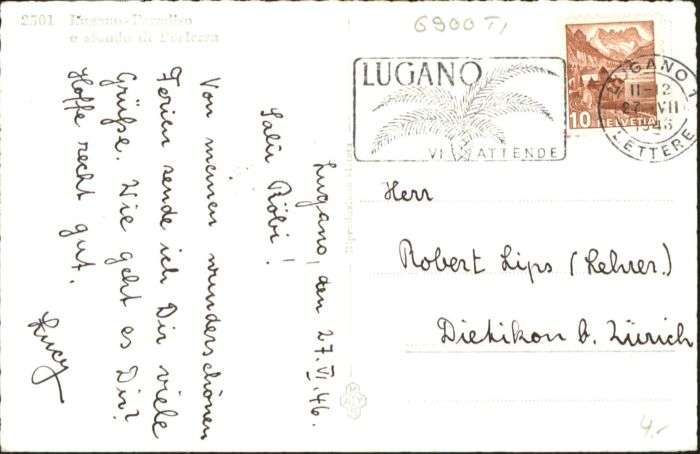 2501 Lugano-Paradiso
e sfondo di Porlezza
6900 TI
LUGANO
VI ATTENDE
LUGANO 1
11-12
27. VII
1946
LETTERE
10 HELVETIA
Lugano, den 27. VI. 46.
Salü Röbi!
Von meinen wunderschönen
Ferien sende ich Dir viele
Grüße. Wie geht es Dir?
Hoffe recht gut.
Lucy
Herr
Robert Lips (Lehrer.)
Dietikon b. Zürich
4.-